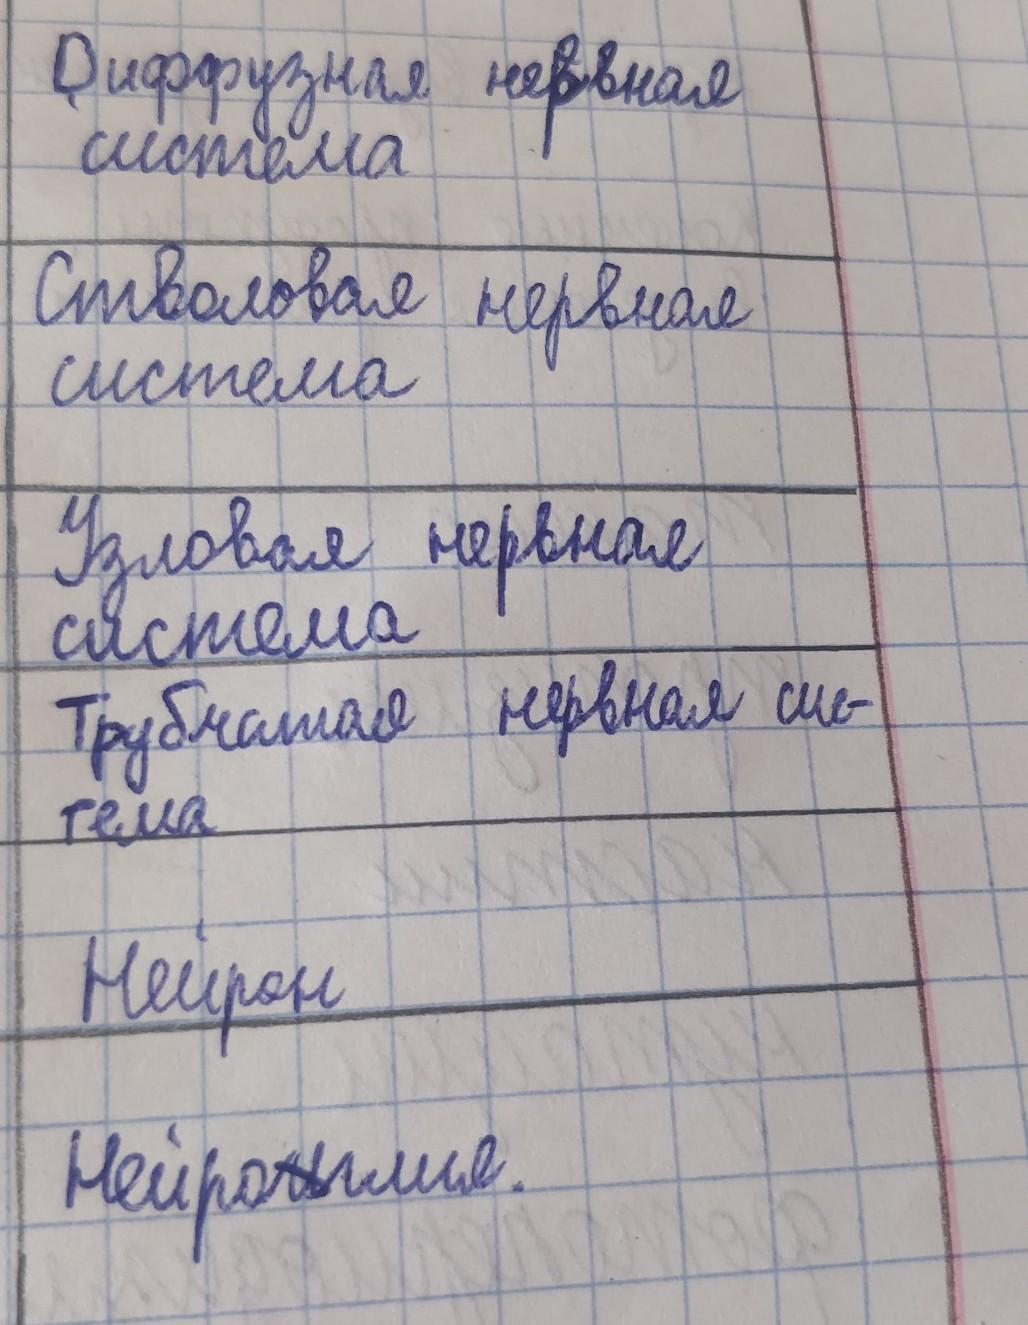 Диффузная нервная
система
Стволовая нервная
система
Узловая нервная
система
Трубчатая нервная сис-
тема
Нейрон
Нейроглия.